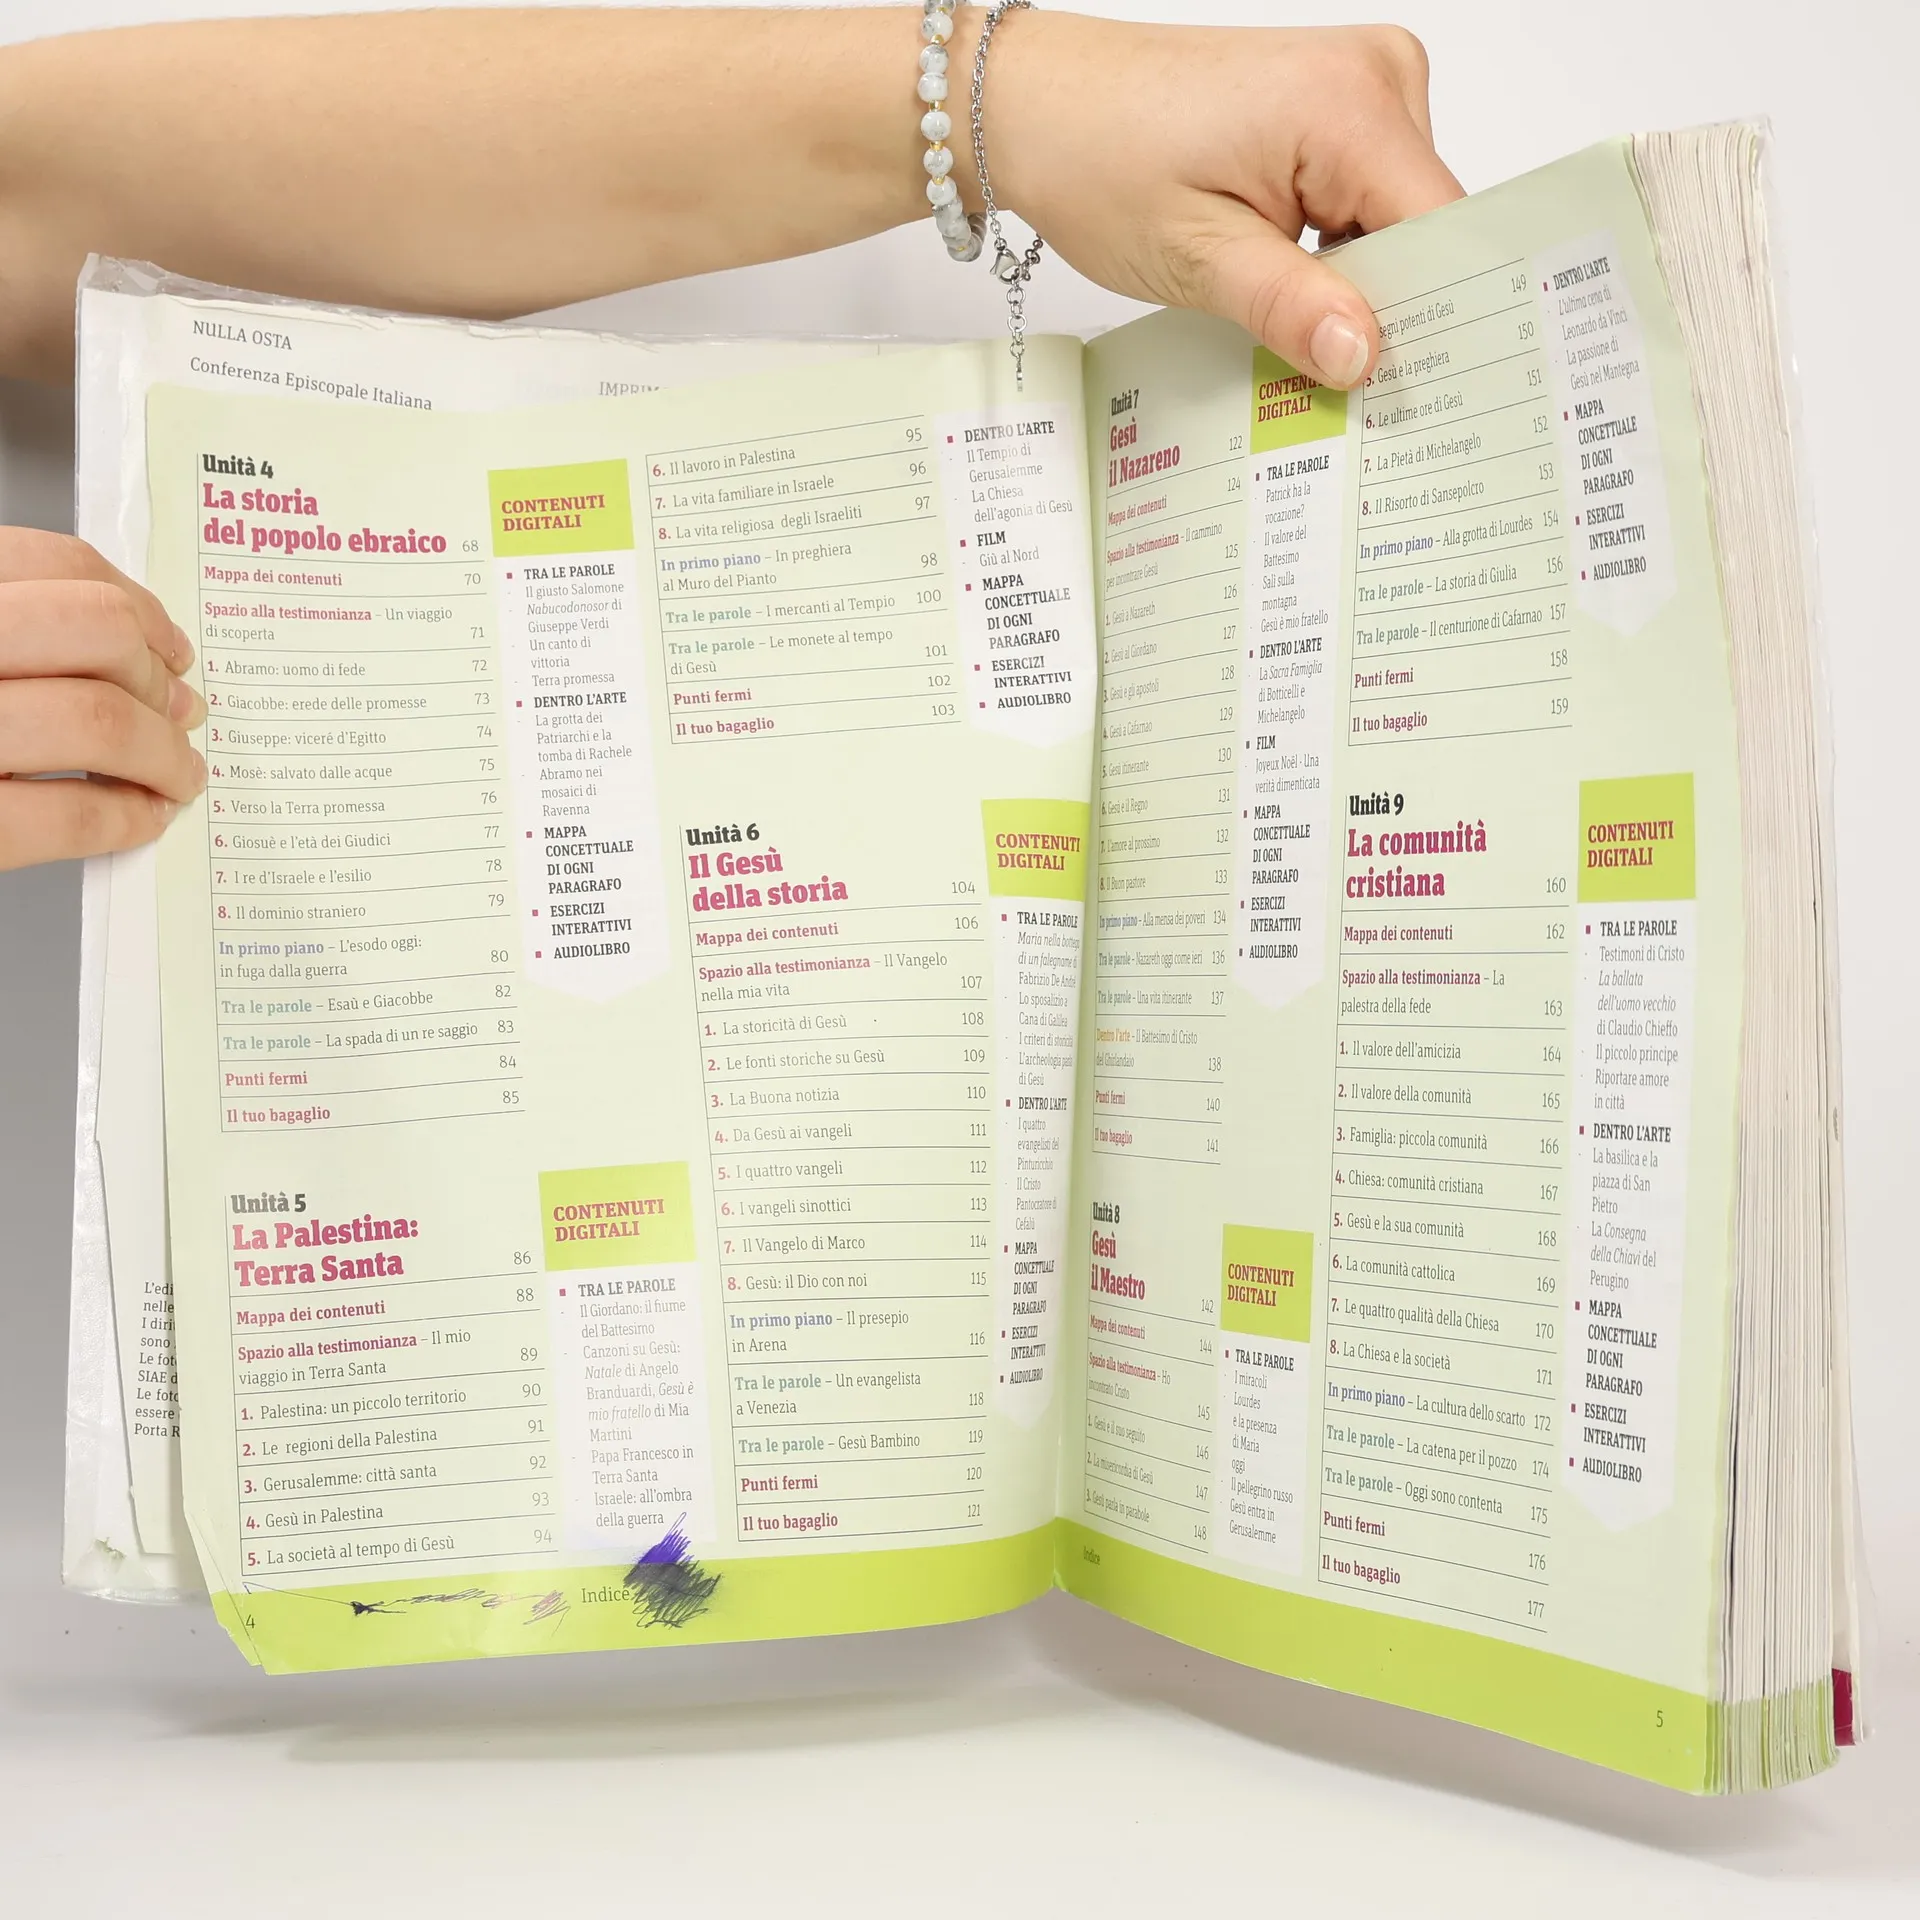 NULLA OSTA
Conferenza Episcopale Italiana
Unità 4
La storia
del popolo ebraico 68
Mappa dei contenuti 70
Spazio alla testimonianza – Un viaggio
di scoperta 71
1. Abramo: uomo di fede 72
2. Giacobbe: erede delle promesse 73
3. Giuseppe: viceré d'Egitto 74
4. Mosè: salvato dalle acque 75
5. Verso la Terra promessa 76
6. Giosuè e l'età dei Giudici 77
7. I re d'Israele e l'esilio 78
8. Il dominio straniero 79
In primo piano – L'esodo oggi:
in fuga dalla guerra 80
Tra le parole – Esaù e Giacobbe 82
Tra le parole – La spada di un re saggio 83
Punti fermi 84
Il tuo bagaglio 85
CONTENUTI
DIGITALI
▪ TRA LE PAROLE
- Il giusto Salomone
- Nabucodonosor di
Giuseppe Verdi
- Un canto di
vittoria
- Terra promessa
▪ DENTRO L'ARTE
- La grotta dei
Patriarchi e la
tomba di Rachele
- Abramo nei
mosaici di
Ravenna
▪ MAPPA
CONCETTUALE
DI OGNI
PARAGRAFO
▪ ESERCIZI
INTERATTIVI
▪ AUDIOLIBRO
Unità 5
La Palestina:
Terra Santa 86
Mappa dei contenuti 88
Spazio alla testimonianza – Il mio
viaggio in Terra Santa 89
1. Palestina: un piccolo territorio 90
2. Le regioni della Palestina 91
3. Gerusalemme: città santa 92
4. Gesù in Palestina 93
5. La società al tempo di Gesù 94
CONTENUTI
DIGITALI
▪ TRA LE PAROLE
- Il Giordano: il fiume
del Battesimo
- Canzoni su Gesù:
Natale di Angelo
Branduardi, Gesù è
mio fratello di Mia
Martini
- Papa Francesco in
Terra Santa
- Israele: all'ombra
della guerra
6. Il lavoro in Palestina 95
7. La vita familiare in Israele 96
8. La vita religiosa degli Israeliti 97
In primo piano – In preghiera
al Muro del Pianto 98
Tra le parole – I mercanti al Tempio 100
Tra le parole – Le monete al tempo
di Gesù 101
Punti fermi 102
Il tuo bagaglio 103
▪ DENTRO L'ARTE
- Il Tempio di
Gerusalemme
- La Chiesa
dell'agonia di Gesù
▪ FILM
- Giù al Nord
▪ MAPPA
CONCETTUALE
DI OGNI
PARAGRAFO
▪ ESERCIZI
INTERATTIVI
▪ AUDIOLIBRO
Unità 6
Il Gesù
della storia 104
Mappa dei contenuti 106
Spazio alla testimonianza – Il Vangelo
nella mia vita 107
1. La storicità di Gesù 108
2. Le fonti storiche su Gesù 109
3. La Buona notizia 110
4. Da Gesù ai vangeli 111
5. I quattro vangeli 112
6. I vangeli sinottici 113
7. Il Vangelo di Marco 114
8. Gesù: il Dio con noi 115
In primo piano – Il presepio
in Arena 116
Tra le parole – Un evangelista
a Venezia 118
Tra le parole – Gesù Bambino 119
Punti fermi 120
Il tuo bagaglio 121
CONTENUTI
DIGITALI
▪ TRA LE PAROLE
- Maria nella bottega
di un falegname di
Fabrizio De André
- Lo sposalizio a
Cana di Galilea
- I criteri di storicità
- L'archeologia parla
di Gesù
▪ DENTRO L'ARTE
- I quattro
evangelisti del
Pinturicchio
- Il Cristo
Pantocratore di
Cefalù
▪ MAPPA
CONCETTUALE
DI OGNI
PARAGRAFO
▪ ESERCIZI
INTERATTIVI
▪ AUDIOLIBRO
4
Indice
L'edi
nelle
I diri
sono
Le fot
SIAE d
Le foto
essere
Porta R
Unità 7
Gesù
il Nazareno 122
Mappa dei contenuti 124
Spazio alla testimonianza – Il cammino
per incontrare Gesù 125
1. Gesù a Nazareth 126
2. Gesù al Giordano 127
3. Gesù e gli apostoli 128
4. Gesù a Cafarnao 129
5. Gesù itinerante 130
6. Gesù e il Regno 131
7. L'amore al prossimo 132
8. Il Buon pastore 133
In primo piano – Alla mensa dei poveri 134
Tra le parole – Nazareth oggi come ieri 136
Tra le parole – Una vita itinerante 137
Dentro l'arte – Il Battesimo di Cristo
del Ghirlandaio 138
Punti fermi 140
Il tuo bagaglio 141
DIGITALI
▪ TRA LE PAROLE
- Patrick ha la
vocazione?
- Il valore del
Battesimo
- Sali sulla
montagna
- Gesù è mio fratello
▪ DENTRO L'ARTE
- La Sacra Famiglia
di Botticelli e
Michelangelo
▪ FILM
- Joyeux Noël - Una
verità dimenticata
▪ MAPPA
CONCETTUALE
DI OGNI
PARAGRAFO
▪ ESERCIZI
INTERATTIVI
▪ AUDIOLIBRO
Unità 8
Gesù
il Maestro 142
Mappa dei contenuti 144
Spazio alla testimonianza – Ho
incontrato Cristo 145
1. Gesù e il suo seguito 146
2. La misericordia di Gesù 147
3. Gesù parla in parabole 148
CONTENUTI
DIGITALI
▪ TRA LE PAROLE
- I miracoli
- Lourdes
e la presenza
di Maria
oggi
- Il pellegrino russo
- Gesù entra in
Gerusalemme
segni potenti di Gesù 149
5. Gesù e la preghiera 150
6. Le ultime ore di Gesù 151
7. La Pietà di Michelangelo 152
8. Il Risorto di Sansepolcro 153
In primo piano – Alla grotta di Lourdes 154
Tra le parole – La storia di Giulia 156
Tra le parole – Il centurione di Cafarnao 157
Punti fermi 158
Il tuo bagaglio 159
▪ DENTRO L'ARTE
- L'ultima cena di
Leonardo da Vinci
- La passione di
Gesù nel Mantegna
▪ MAPPA
CONCETTUALE
DI OGNI
PARAGRAFO
▪ ESERCIZI
INTERATTIVI
▪ AUDIOLIBRO
Unità 9
La comunità
cristiana 160
Mappa dei contenuti 162
Spazio alla testimonianza – La
palestra della fede 163
1. Il valore dell'amicizia 164
2. Il valore della comunità 165
3. Famiglia: piccola comunità 166
4. Chiesa: comunità cristiana 167
5. Gesù e la sua comunità 168
6. La comunità cattolica 169
7. Le quattro qualità della Chiesa 170
8. La Chiesa e la società 171
In primo piano – La cultura dello scarto 172
Tra le parole – La catena per il pozzo 174
Tra le parole – Oggi sono contenta 175
Punti fermi 176
Il tuo bagaglio 177
CONTENUTI
DIGITALI
▪ TRA LE PAROLE
- Testimoni di Cristo
- La ballata
dell'uomo vecchio
di Claudio Chieffo
- Il piccolo principe
- Riportare amore
in città
▪ DENTRO L'ARTE
- La basilica e la
piazza di San
Pietro
- La Consegna
della Chiavi del
Perugino
▪ MAPPA
CONCETTUALE
DI OGNI
PARAGRAFO
▪ ESERCIZI
INTERATTIVI
▪ AUDIOLIBRO
Indice
5